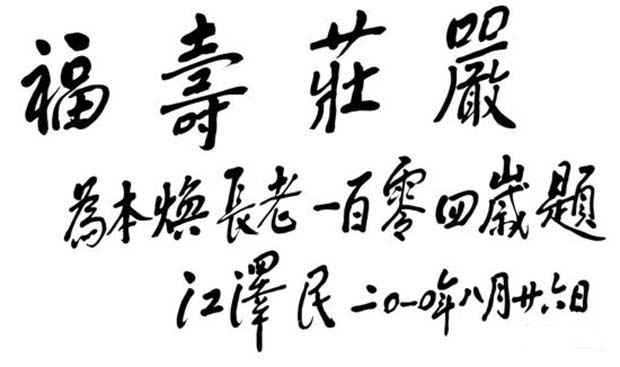 福壽莊嚴
為本煥長老一百零四歲題
江澤民二〇一〇年八月廿六日